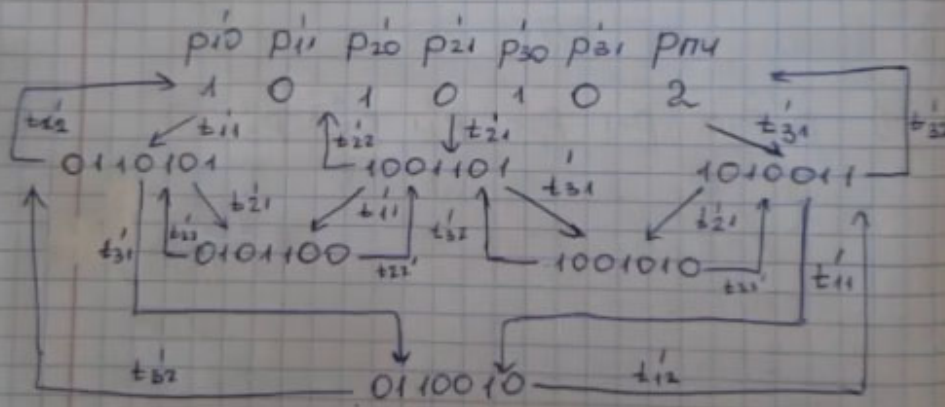 p'10 p'11 p'20 p'21 p'30 p'31 pпч
1 0 1 0 1 0 2
t'12 t'11 t'22 t'21 t'31 t'32
0110101 1001101 1010011
t'21 t'11 t'31 t'21
t'31 t'32 t'11
0101100 t'22 1001010
t'32 0110010 t'12